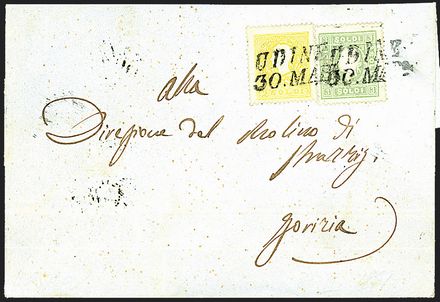 UDINE UDINE
30. MAR 30. MA
SOLDI SOLDI
alla
Direzione del Molino di
Strazig.
Gorizia